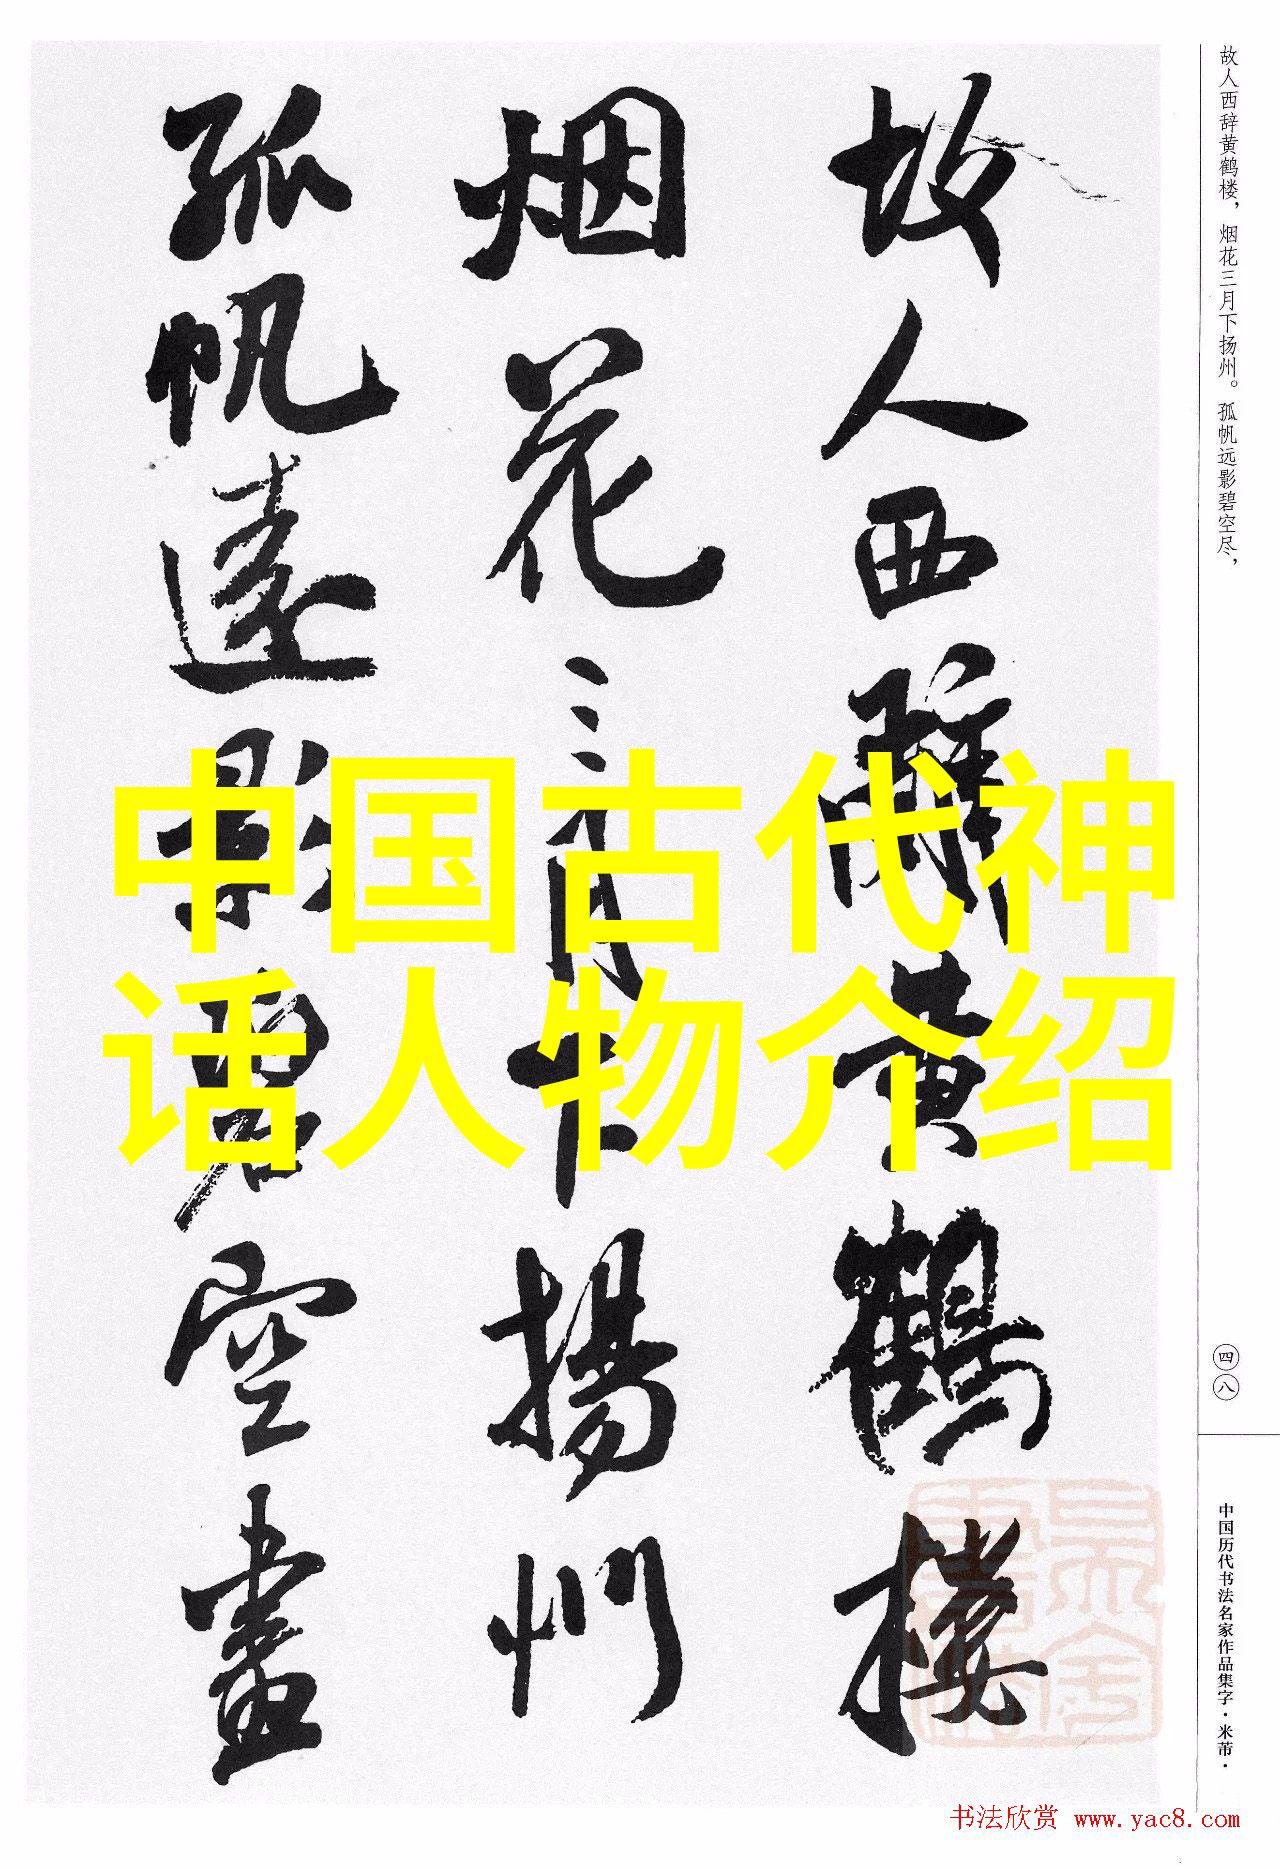 故人西辞黄鹤楼，烟花三月下扬州。孤帆远影碧空尽，
故人西辭黄鶴楼
烟花三月下揚州
孤帆遠影碧空盡
中国古代神
话人物介绍
四八
中国历代书法名家作品集字·米芾·
书法欣赏 www.yac8.com